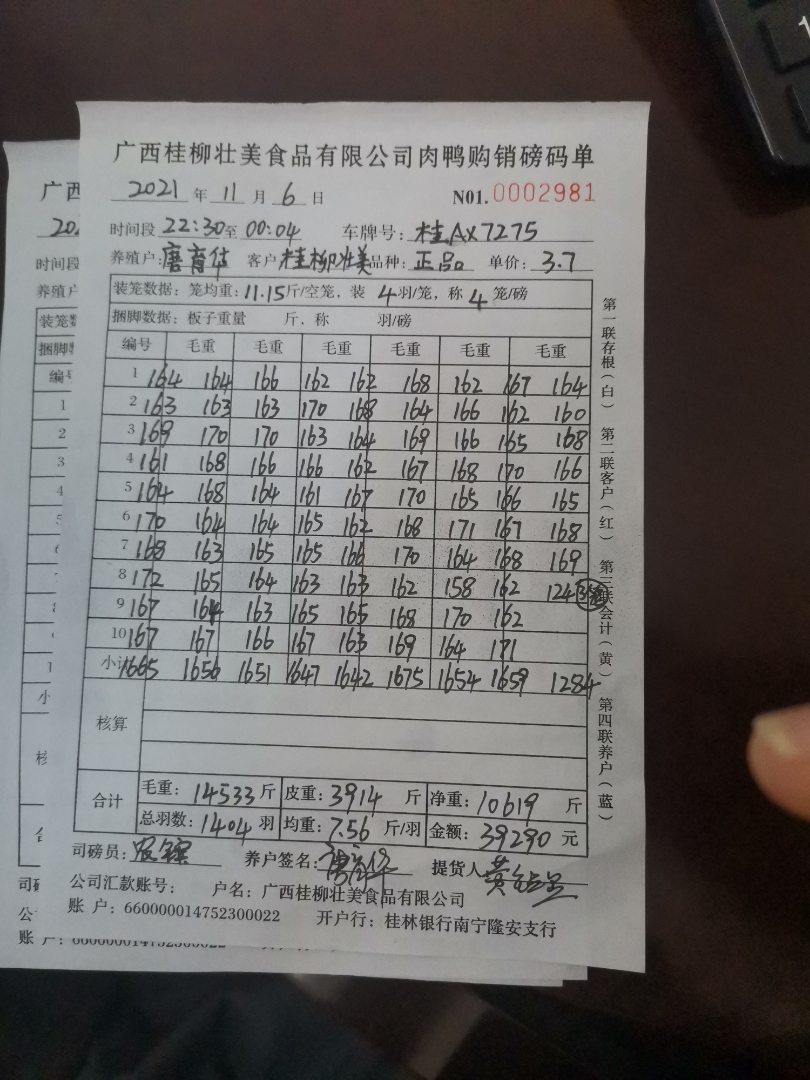 广西桂柳壮美食品有限公司肉鸭购销磅码单
2021 年 11 月 6 日 N01. 0002981
时间段 22:30 至 00:04 车牌号: 桂AX7275
养殖户: 唐育 客户 桂柳壮美 品种: 正品 单价: 3.7
装笼数据: 笼均重: 11.15 斤/空笼, 装 4 羽/笼, 称 4 笼/磅
捆脚数据: 板子重量 斤, 称 羽/磅
编号 毛重 毛重 毛重 毛重 毛重 毛重
1 164 164 166 162 162 168 162 167 164
2 163 163 163 170 168 164 166 162 160
3 169 170 170 163 164 169 166 165 168
4 161 168 166 166 162 167 168 170 166
5 164 168 164 161 167 170 165 166 165
6 170 164 164 165 162 168 171 167 168
7 168 163 165 165 166 170 164 168 169
8 172 165 164 163 163 162 158 162 124
9 167 164 163 165 165 168 170 162
10 167 167 166 167 163 169 164 171
小计 1665 1656 1651 1647 1642 1675 1654 1659 1284
核算
合计 毛重: 14533 斤 皮重: 3914 斤 净重: 10619 斤
总羽数: 1404 羽 均重: 7.56 斤/羽 金额: 39290 元
司磅员: 养户签名: 提货人
公司汇款账号: 户名: 广西桂柳壮美食品有限公司
账 户: 660000014752300022 开户行: 桂林银行南宁隆安支行
第一联存根(白) 第二联客户(红) 第三联会计(黄) 第四联养户(蓝)
广西
时间段
养殖户
装笼数
捆脚
编号
1
2
3
4
小
核
司
公
账 户: 660000014752300022